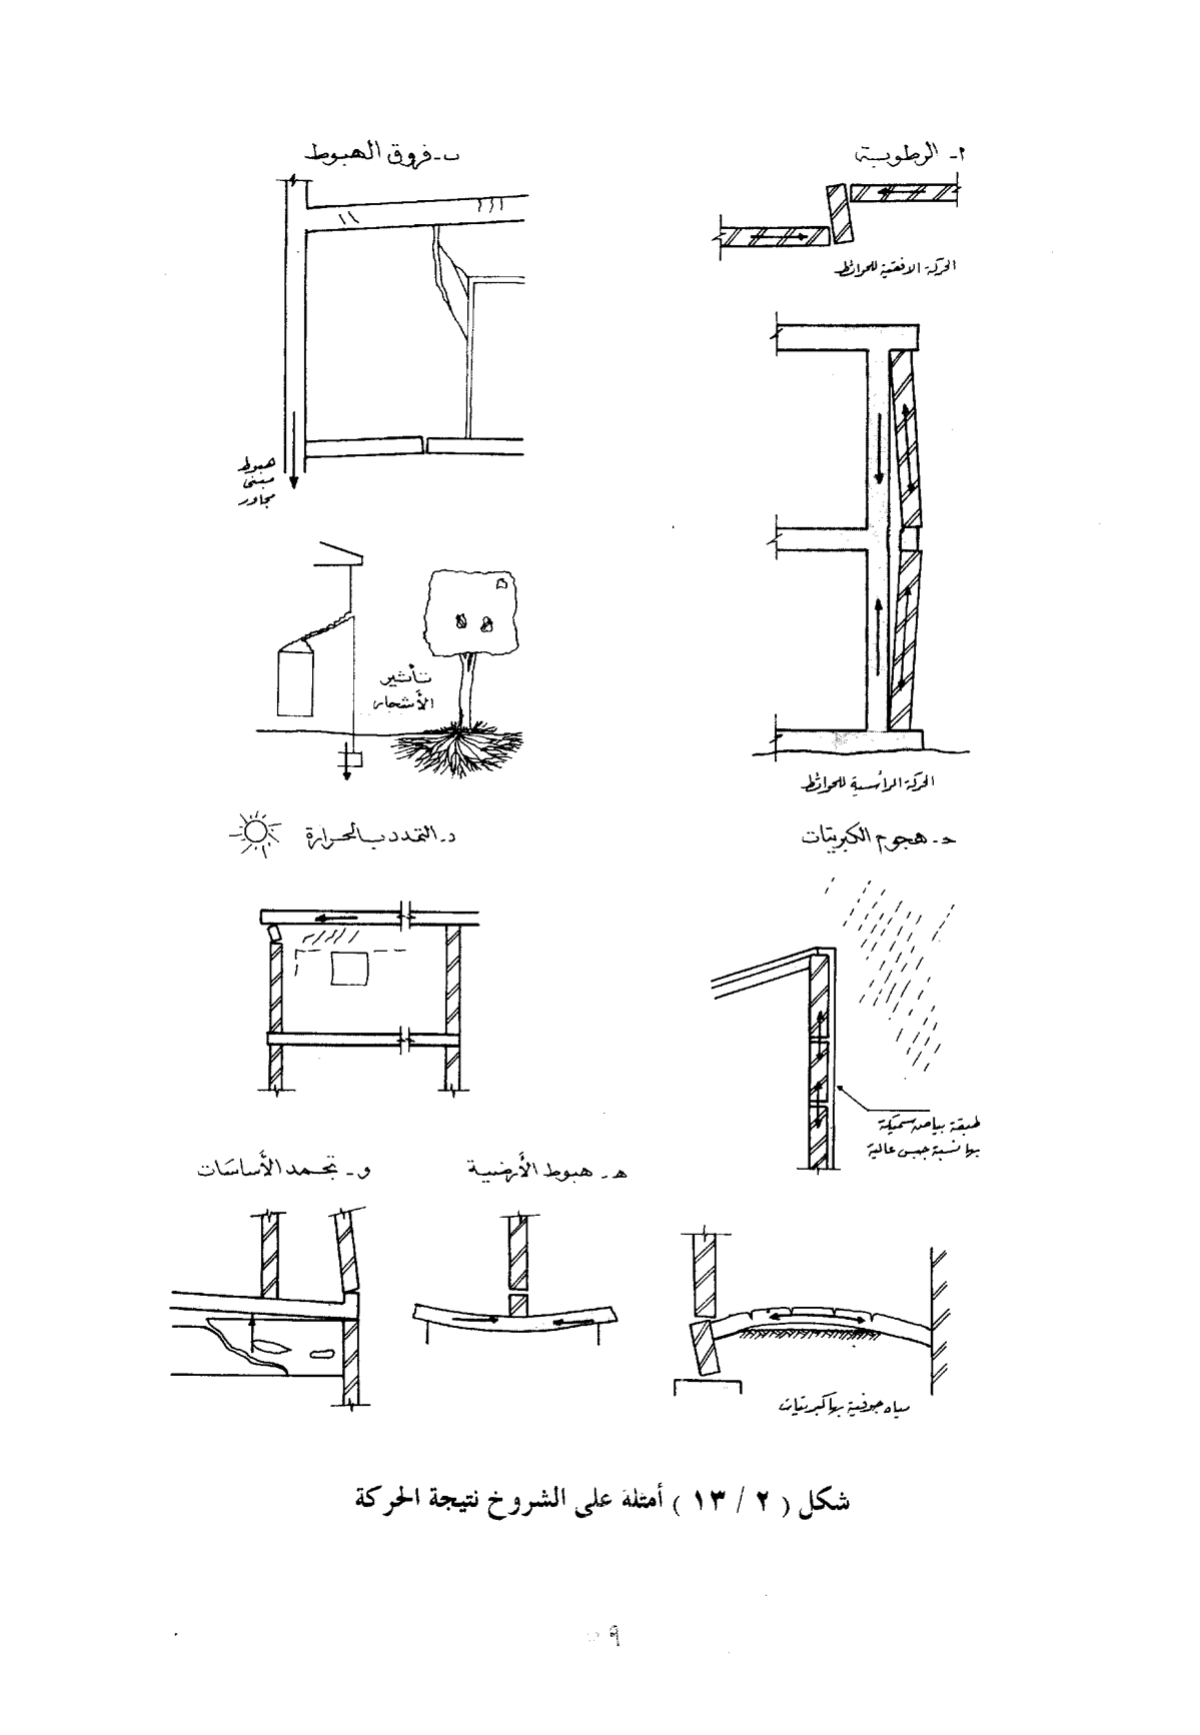 أ - الرطوبة
الحركة الافقية للحوائط
الحركة الرأسية للحوائط
ب - فروق الهبوط
هبوط
مبنى
مجاور
تأثير
الأشجار
حـ - هجوم الكبريتات
طبقة بياض سميكة
بها نسبة جبس عالية
مياه جوفية بها كبريتات
د - التمدد بالحرارة
هـ - هبوط الأرضية
و - تجمد الأساسات
شكل ( ٢ / ١٣ ) أمثلة على الشروخ نتيجة الحركة